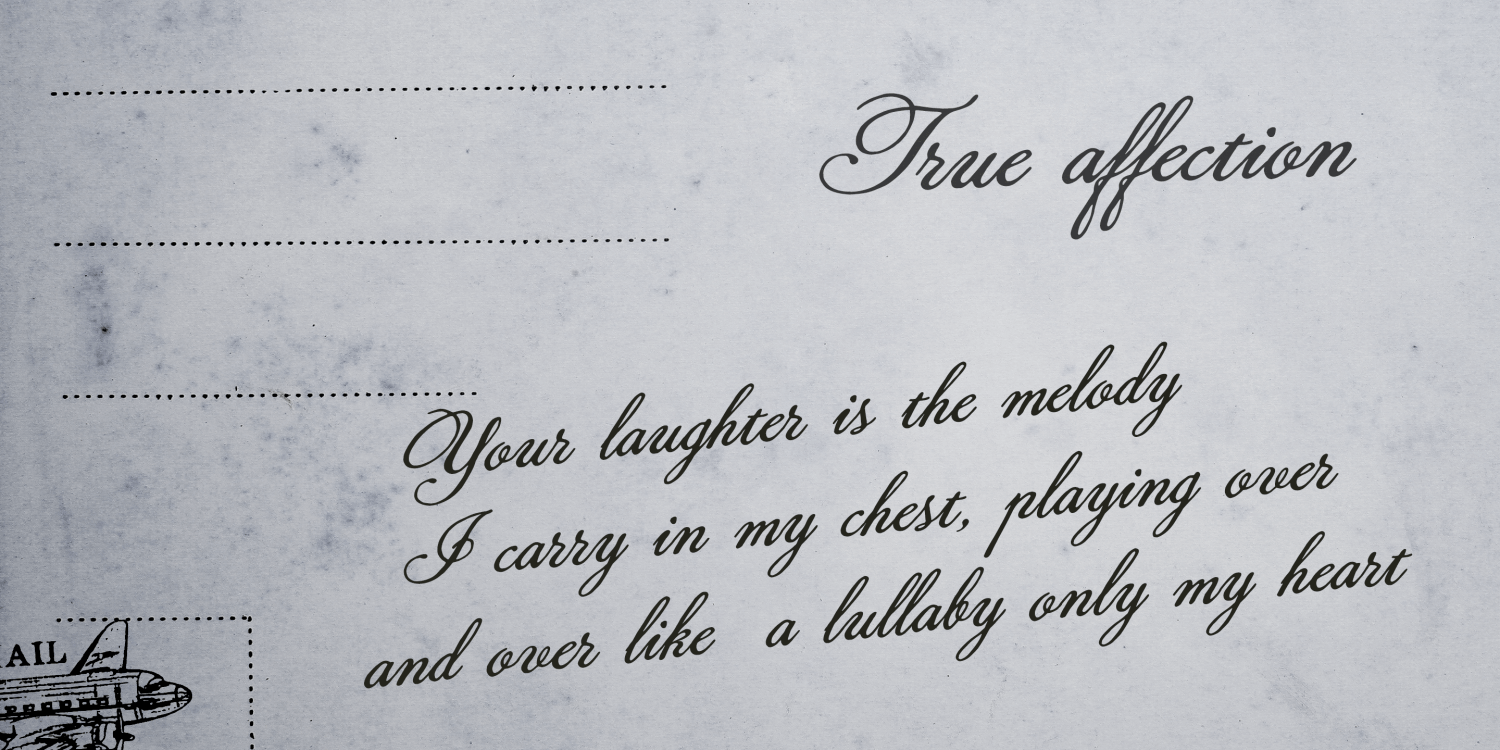 True affection
Your laughter is the melody
I carry in my chest, playing over
and over like a lullaby only my heart
AIL